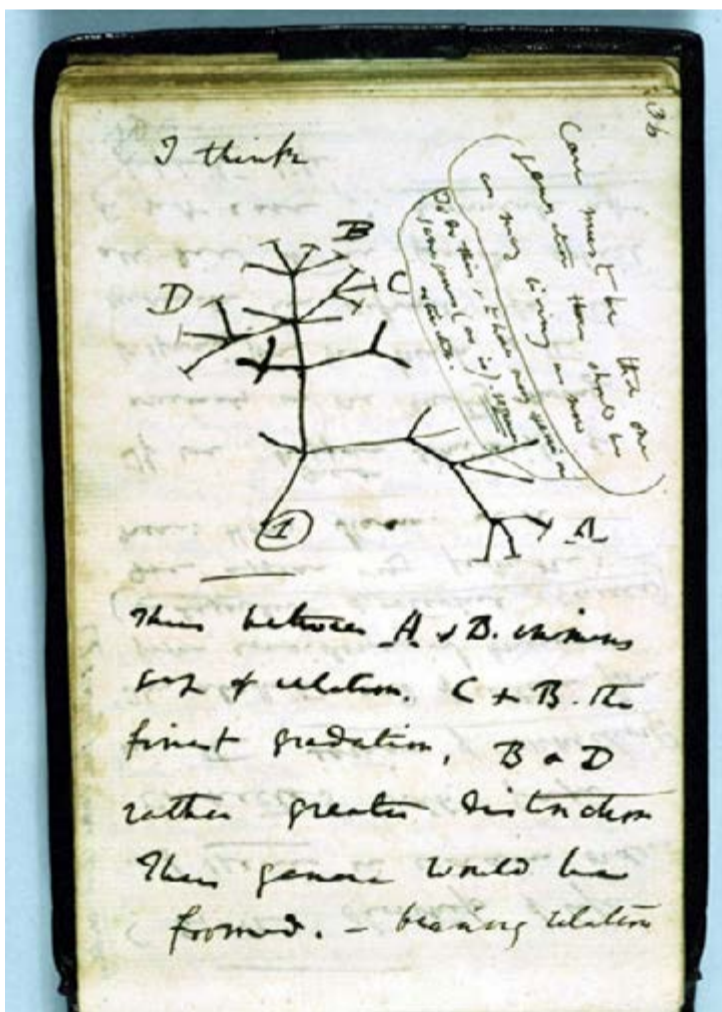 36
I think
Case must be that one
generation then should be
as many living as now
To do this & to have many species in
same genus (as is). requires
extinction.
B
D
C
1
A
Thus between A & B. immens
gap of relation. C + B. the
finest gradation, B & D
rather greater distinction
Thus genera would be
formed. — bearing relation